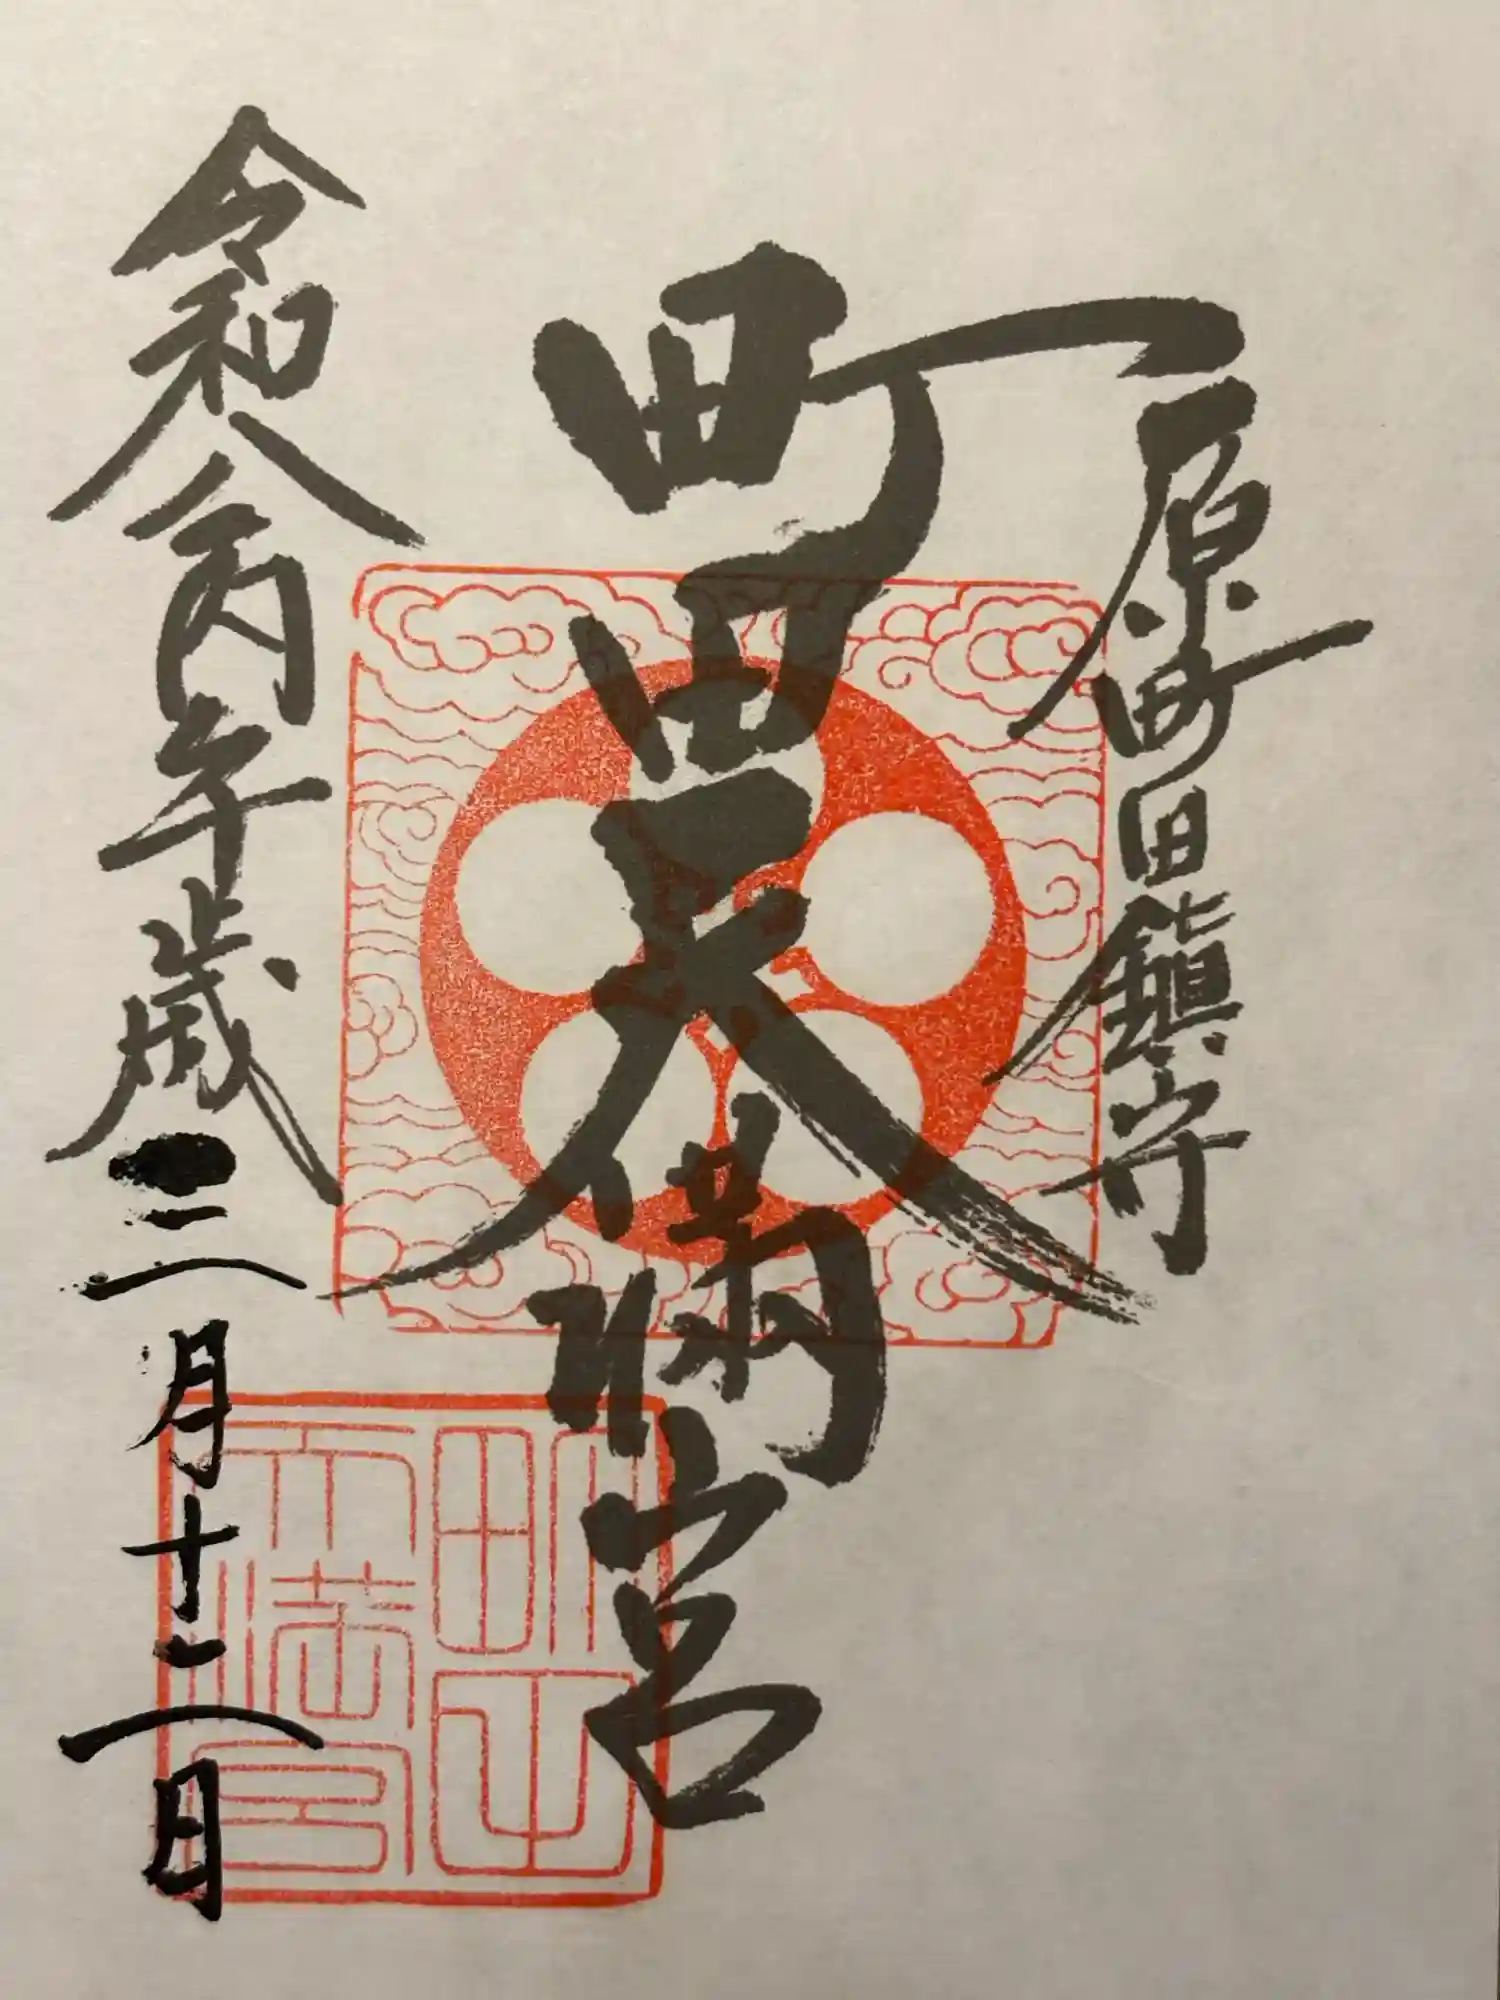 原町田鎮守
町田天満宮
令和八丙午歳三月十二日
町田天満宮